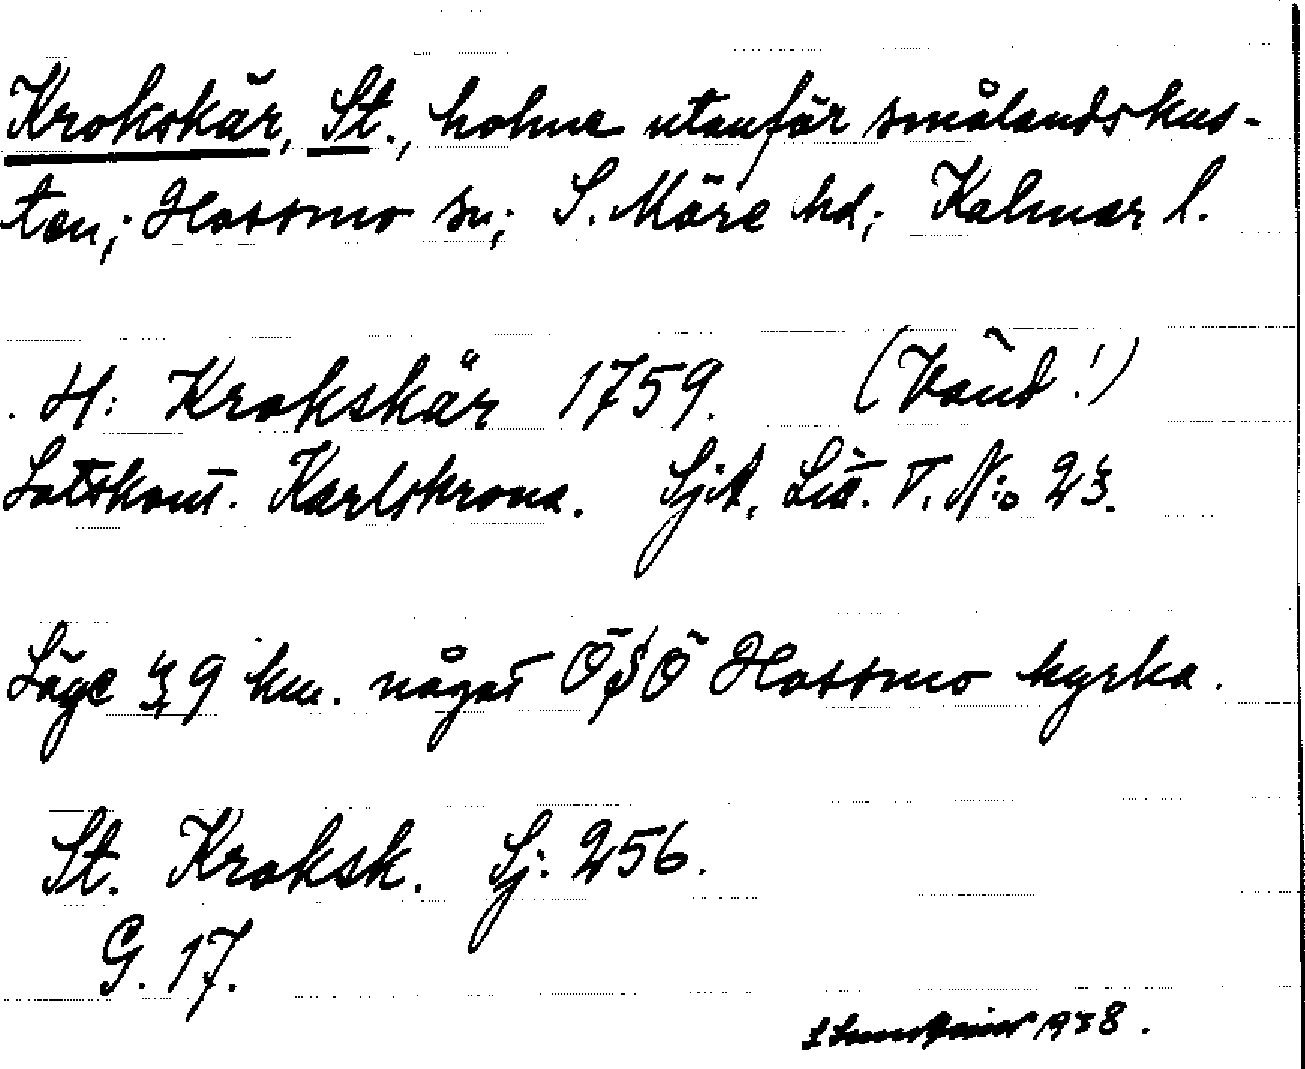 Krokskär, St., holme utanför smålandskus-
ten; Hossmo sn; S. Möre hd; Kalmar l.
H: Krokskär 1759. (Vänd!)
Lotskont. Karlskrona. Sjk, Litt. T. N:o 23.
Läge 9 km. något Ö§Ö Hossmo kyrka.
St. Kroksk. Sj. 256.
G. 17.
1938.